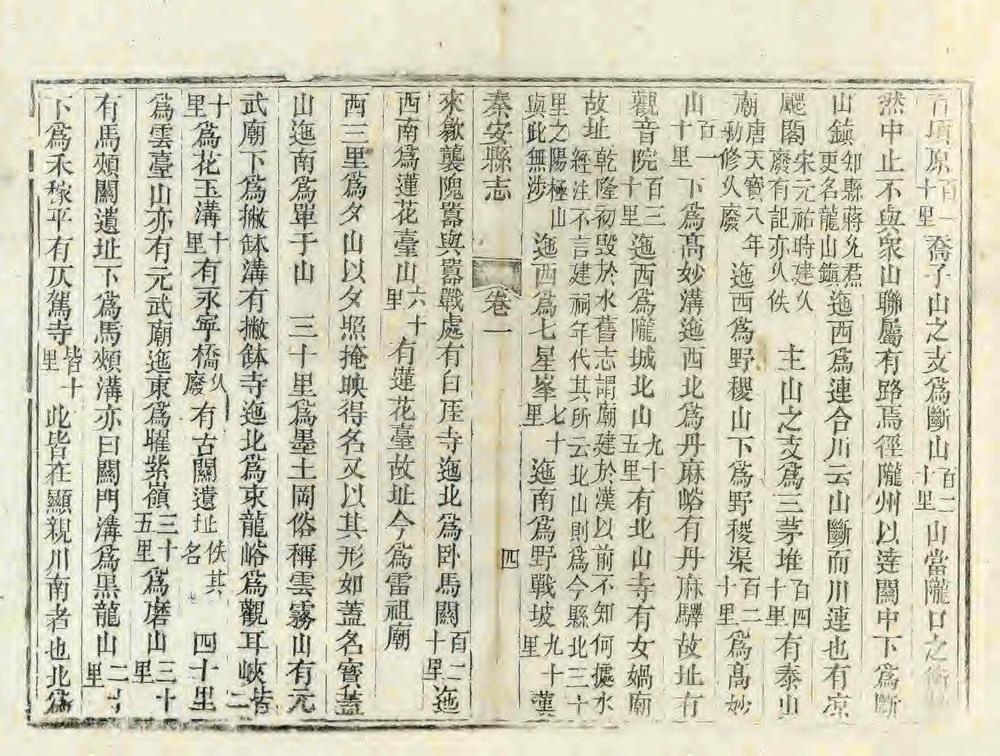 百頃原百一十里喬子山之支為斷山百二十里山當隴口之衝
然中止不與衆山聯屬有路焉徑隴州以達關中下為斷
山鎮知縣蔣允焄更名龍山鎮迤西為連合川云山斷而川連也有凉
颸閣宋元祐時建久廢有記亦久佚 主山之支為三茅堆百四十里有泰山
廟唐天寶八年勅修久廢迤西為野稷山下為野稷渠百二十里為高妙
山百一十里下為高妙溝迤西北為丹麻峪有丹麻驛故址有
觀音院百三十里迤西為隴城北山九十五里有北山寺有女媧廟
故址乾隆初毀於水舊志謂廟建於漢以前不知何據水經注不言建祠年代其所云北山則為今縣北三十
里之陽極山與此無涉迤西為七星峯七十里迤南為野戰坡九十里漢
秦安縣志 卷一 四
來歙襲隗囂與囂戰處有曰厓寺迤北為臥馬關百二十里迤
西南為蓮花臺山六十里有蓮花臺故址今為雷祖廟
西三里為夕山以夕照掩映得名又以其形如蓋名寶蓋
山迤南為單于山 三十里為墨土岡俗稱雲霧山有元
武廟下為撇鉢溝有撇鉢寺迤北為束龍峪為觀耳峽皆二
十里為花玉溝十里有永寧橋久廢有古關遺址佚其名 四十里
為雲臺山亦有元武廟迤東為曜紫嶺三十五里為磨山三十里
有馬頰關遺址下為馬頰溝亦曰關門溝為黑龍山二里
下為禾稼平有仄駕寺皆十里此皆在顯親川南者也北為